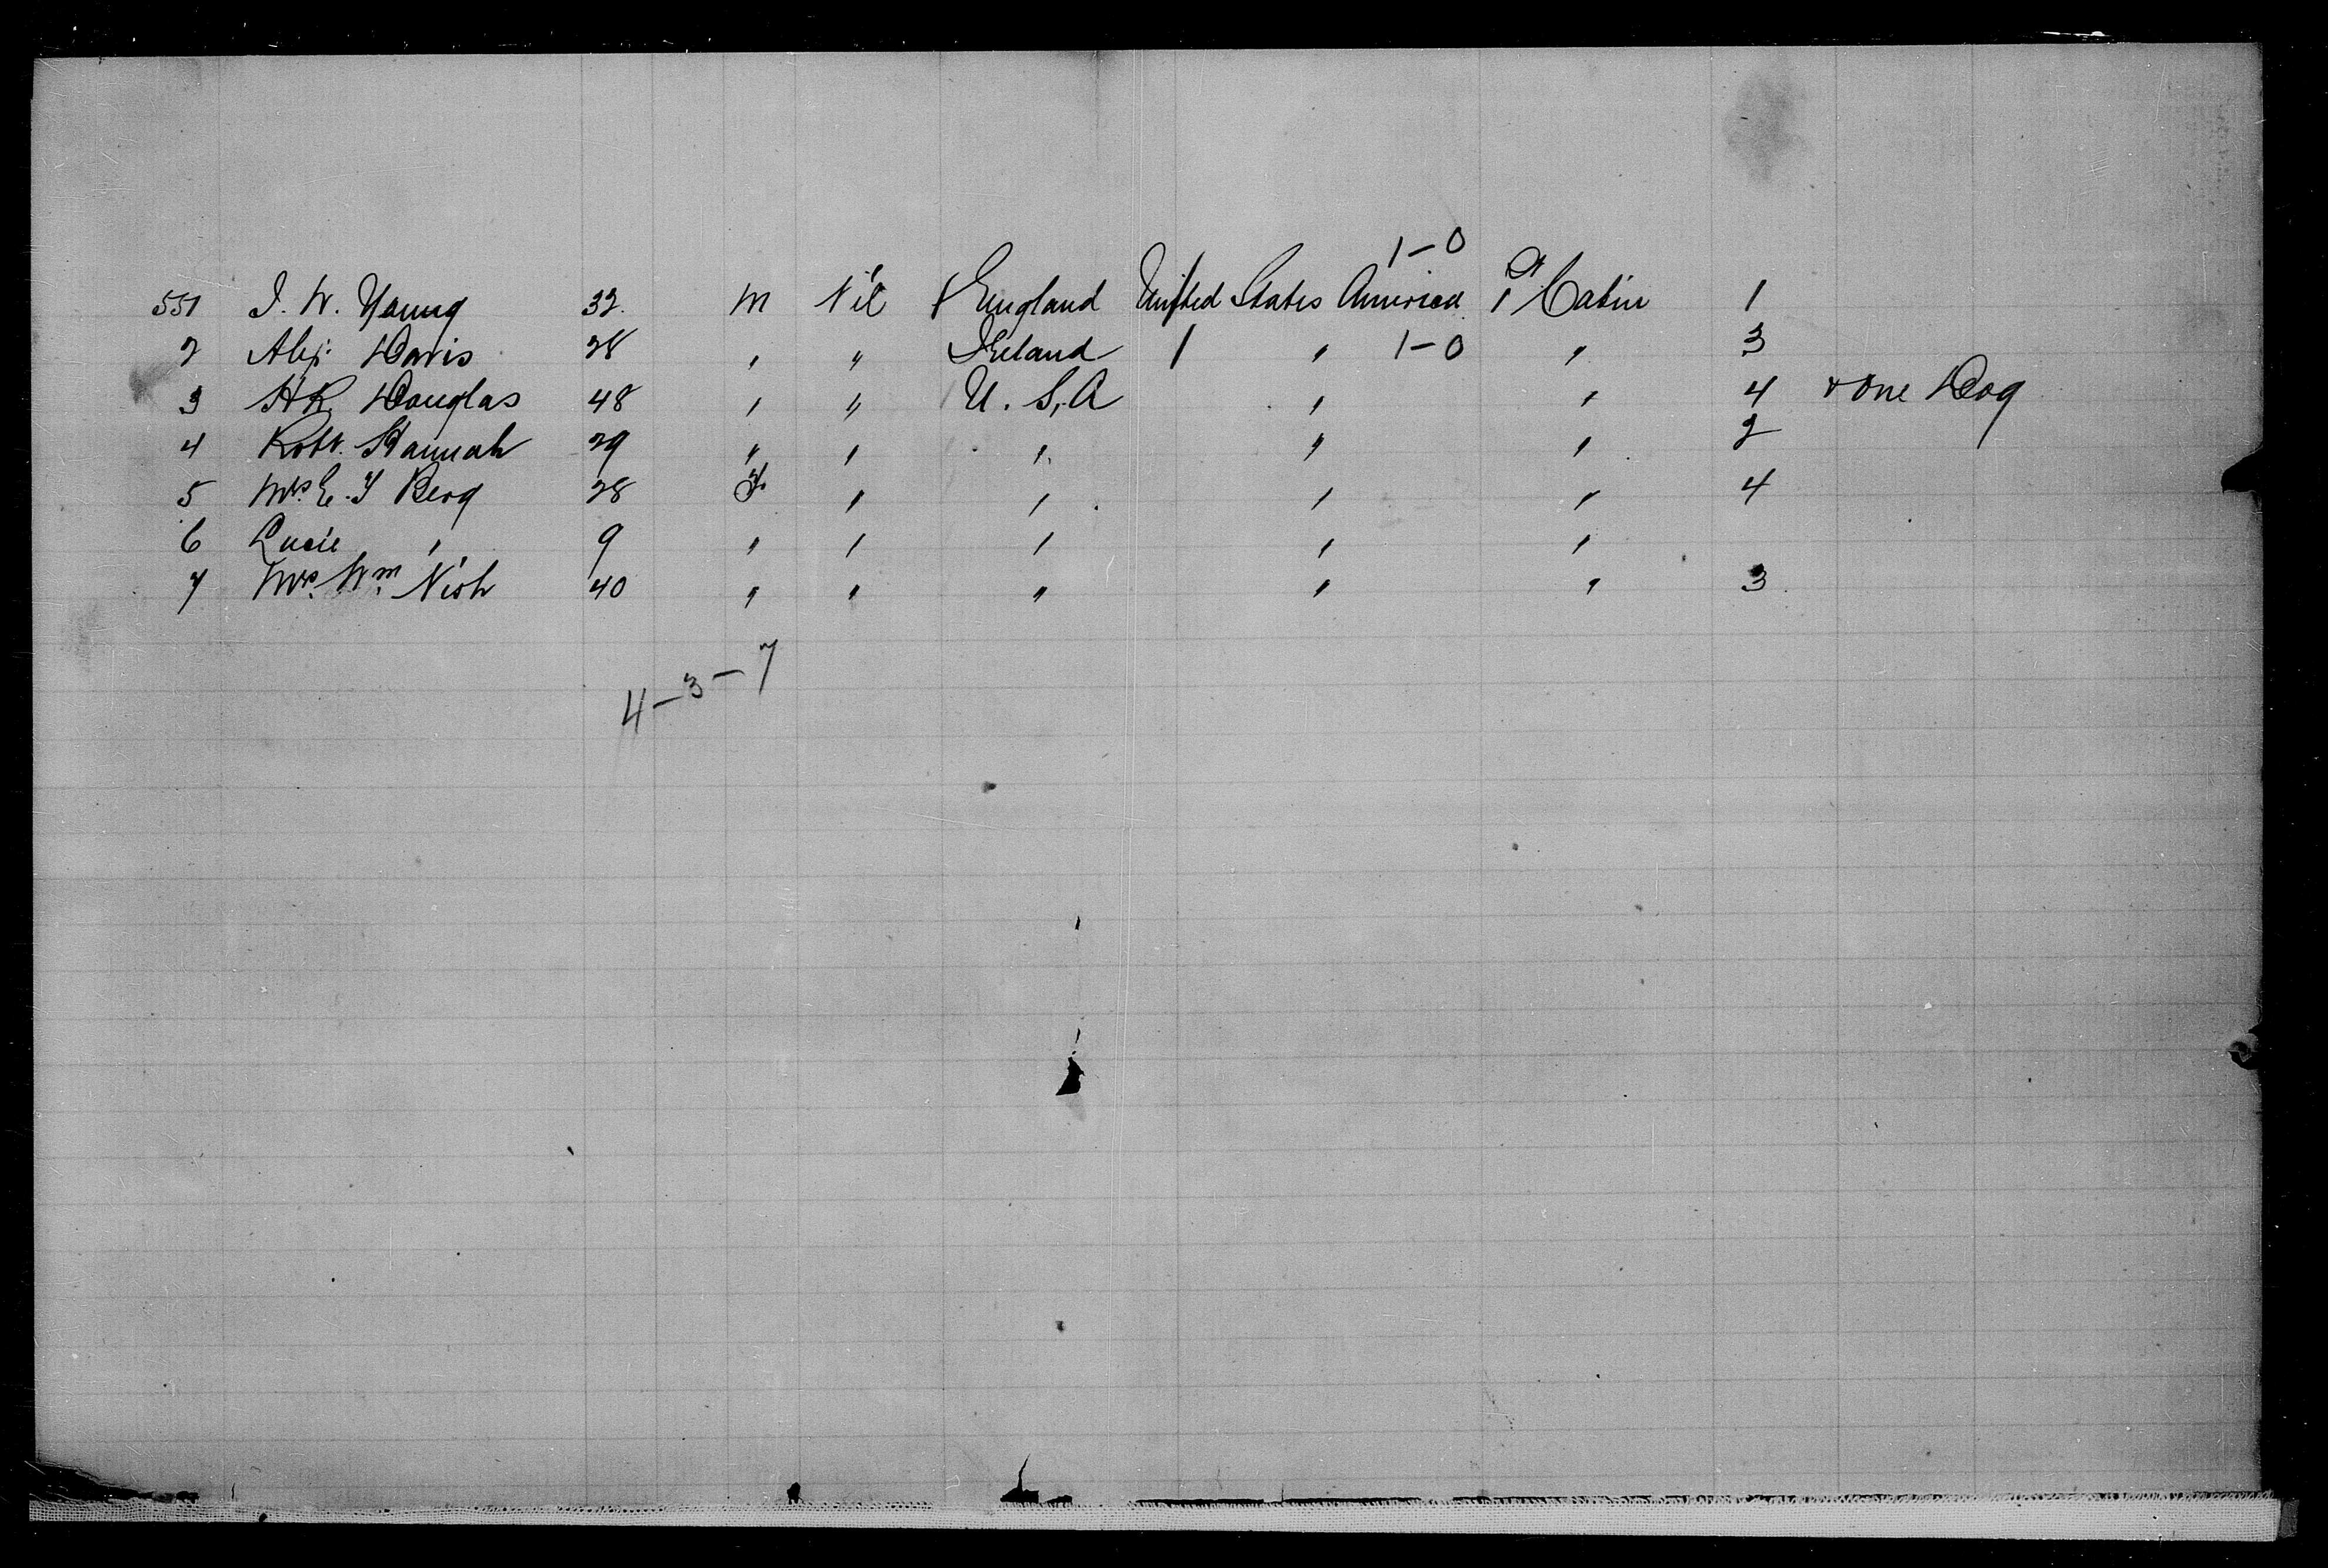 1-0
551 J. W. Young 32 M Nil England United States America 1st Cabin 1
2 Alex. Davis 28 " " Ireland 1 " 1-0 " 3
3 H K Douglas 48 " " U. S. A " " 4 & One Dog
4 Robt. Hannah 29 " " " " " 2
5 Mrs. E. F Berg 28 F. " " " " 4
6 Lucie " 9 " " " " "
7 Mrs. Wm. Nish 40 " " " " " 3
4-3-7